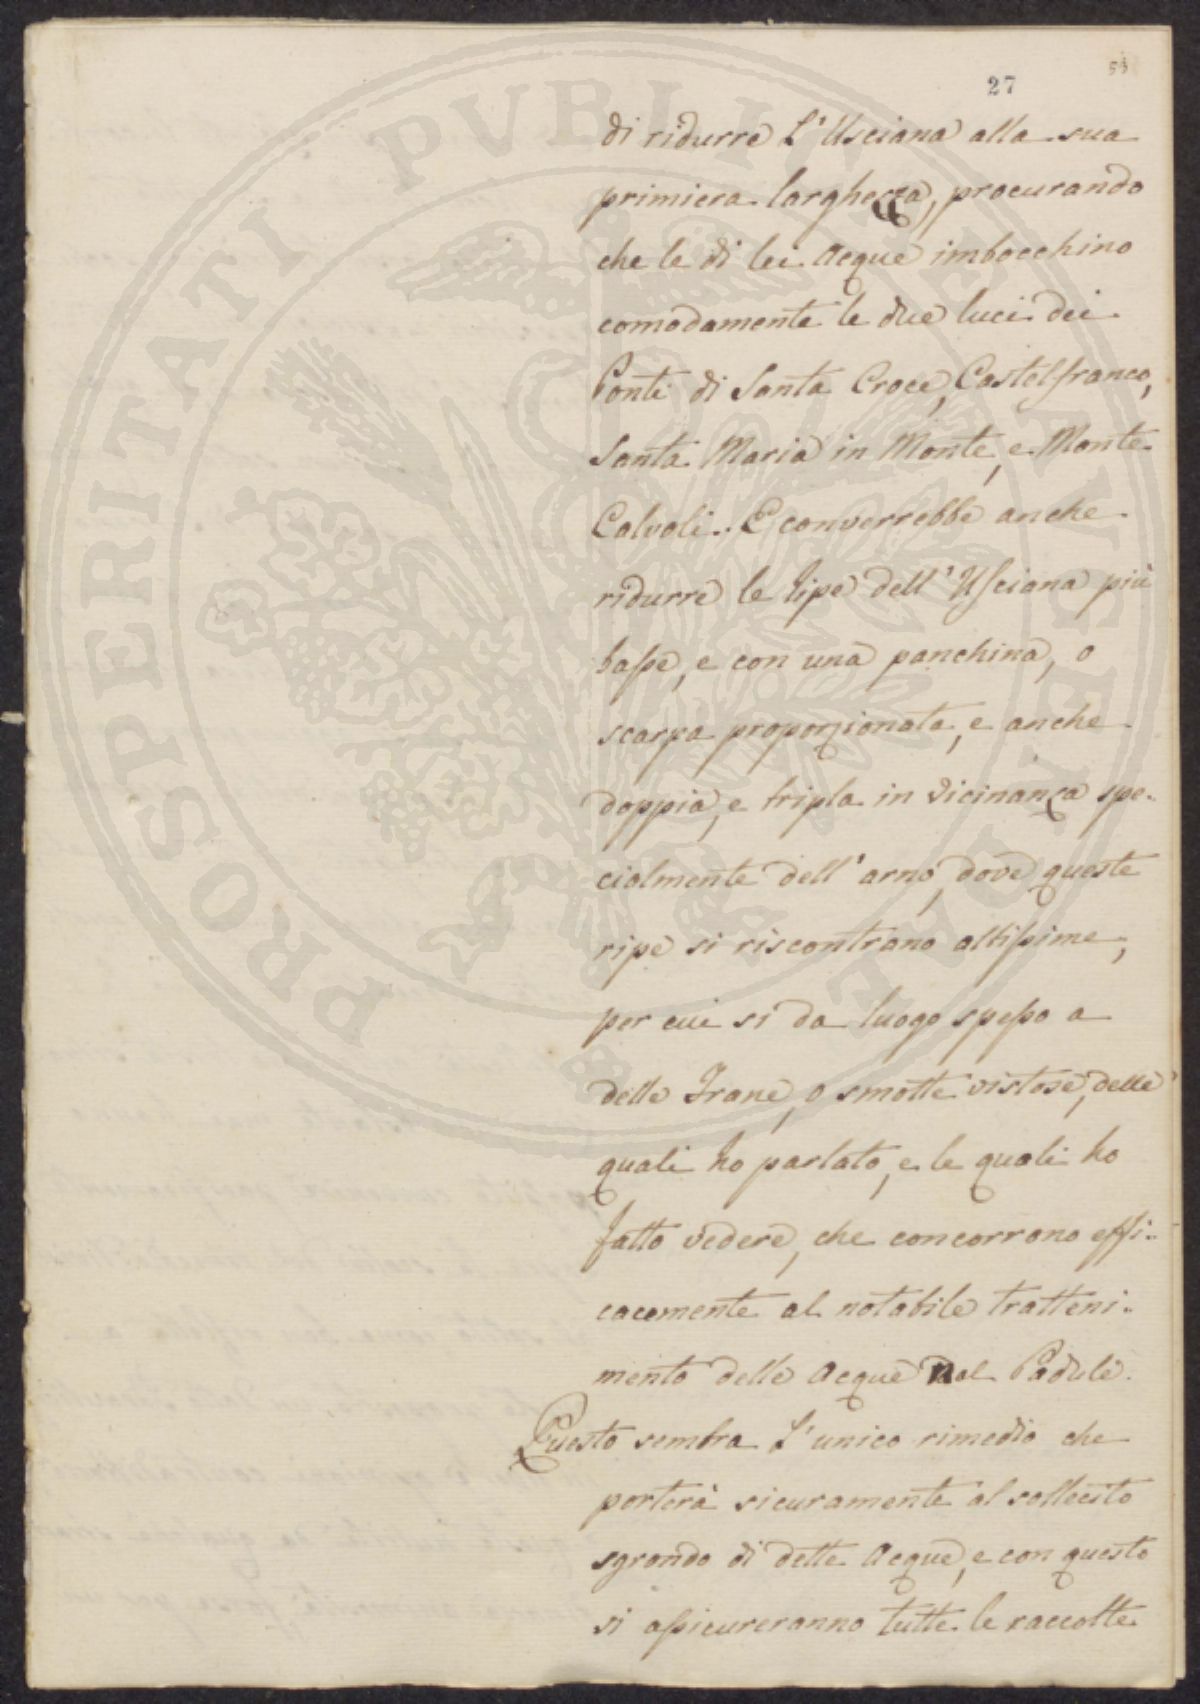 53
27
di ridurre L'Usciana alla sua
primiera larghezza, procurando
che le di lei Acque imbocchino
comodamente le due luci dei
Ponti di Santa Croce, Castelfranco,
Santa Maria in Monte, e Monte
Calvoli. E converrebbe anche
ridurre le ripe dell'Usciana più
basse, e con una panchina, o
scarpa proporzionata, e anche
doppia, e tripla in vicinanza spe-
cialmente dell'arno, dove queste
ripe si riscontrano altissime,
per cui si da luogo spesso a
delle Frane, o smotte vistose, delle
quali ho parlato, e le quali ho
fatto vedere, che concorrono effi-
cacemente al notabile tratteni-
mento delle Acque nel Padule.
Questo sembra L'unico rimedio che
porterà sicuramente al sollecito
sgrondo di dette Acque, e con questo
si assicureranno tutte le raccolte
PROSPERITATI PUBLICAE AUGENDAE